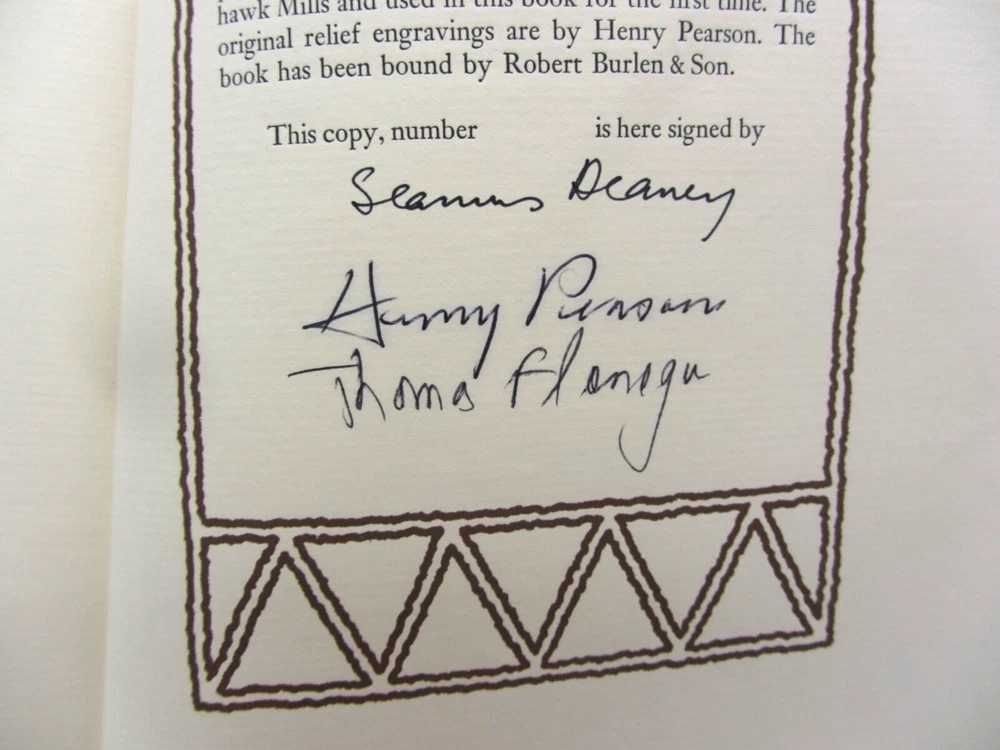 hawk Mills and used in this book for the first time. The
original relief engravings are by Henry Pearson. The
book has been bound by Robert Burlen & Son.
This copy, number is here signed by
Seamus Deaney
Henry Pearson
Thomas Flanagan